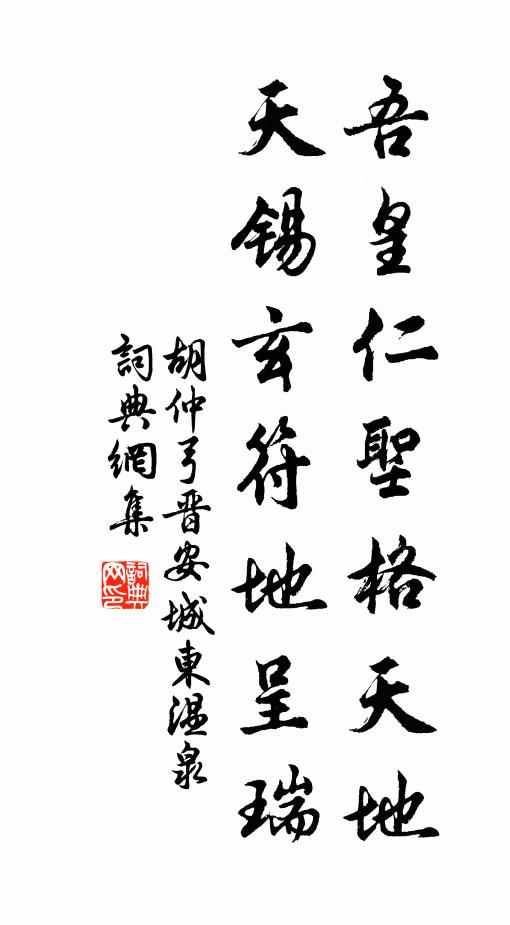 吾皇仁聖格天地
天錫玄符地呈瑞
胡仲弓晋安城東溫泉
詞典網集
詞典網印